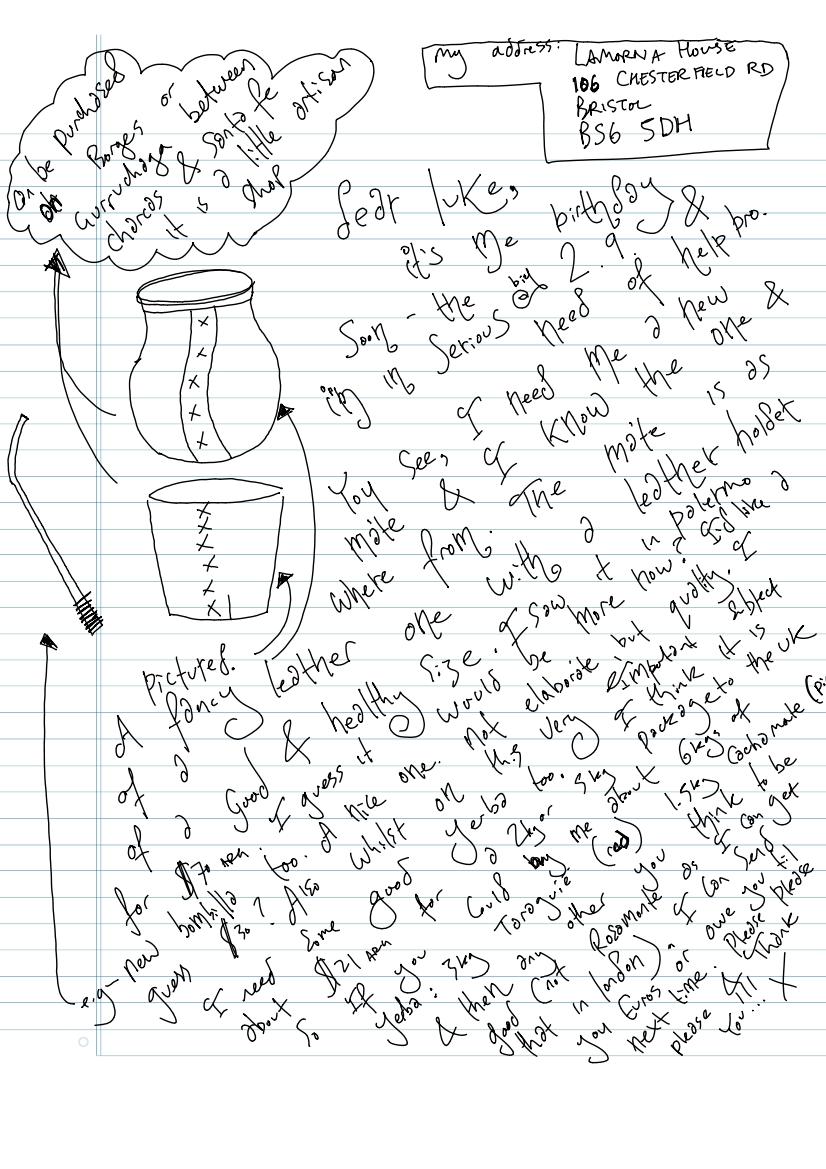 my address: LAMORNA HOUSE
106 CHESTERFIELD RD
BRISTOL
BS6 5DH
can be purchased
on Borges or
Gurruchaga between
charcas & Santa fe
it is a little artisan
shop
Dear Luke,
it's me birthday &
Soon - the big 2.9.
i'm in serious need of help bro.
You see, I need me a new
mate & I know the one &
where from. The mate is as
pictured.
A fancy leather one with a leather holder
of a good & healthy size. I saw it in palermo
for $70 ARA. I guess it would be more now? I'd like a
e.g - new bombilla too. A nice one. Not elaborate but quality. I
guess $30? Also whilst on this very important subject
I need some good yerba too. I think it is
about $21 ARA for a 2kg or 3kg package to the UK
So if you could buy me about 6kgs of
yerba: 3kg Taraguie (red) 1.5kg Cachamate (pi
& then any other you think to be
good (not Rosamonte as I can get
that in london). I can send
you Euros or owe you til
next time. Please please
please & Thank
You... X